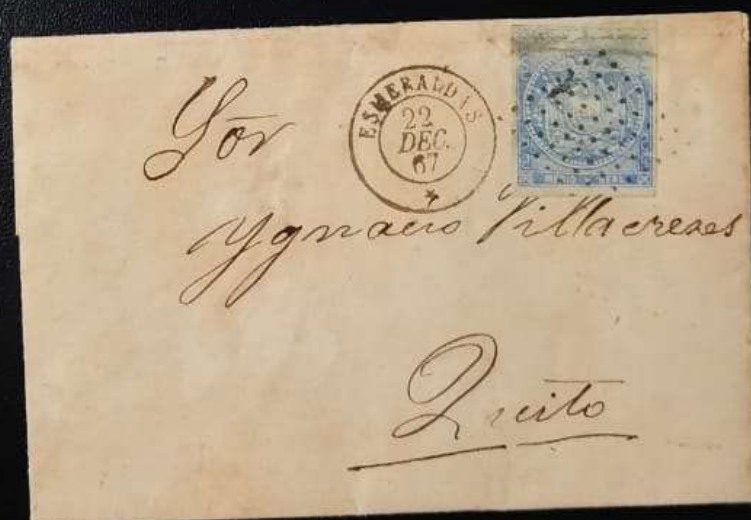 ESMERALDAS
22
DEC.
67
Sōr
Ygnacio Villacreses
Quito